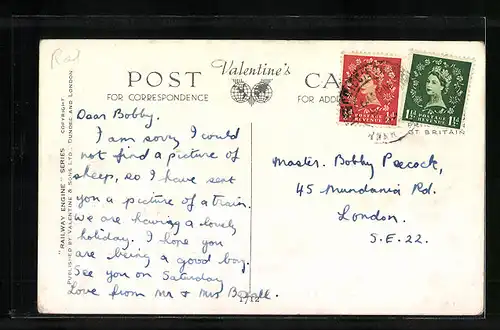 Rad
Valentine's
POST CA
FOR CORRESPONDENCE FOR ADDR
POSTAGE REVENUE ½d
POSTAGE REVENUE 1½d
OT BRITAIN
"RAILWAY ENGINE" SERIES COPYRIGHT
PUBLISHED BY VALENTINE & SONS LTD., DUNDEE AND LONDON
Dear Bobby.
I am sorry I could
not find a picture of
sheep, so I have sent
you a picture of a train.
We are having a lovely
holiday. I hope you
are being a good boy.
See you on Saturday
Love from Mr & Mrs
Master. Bobby Peacock,
45 Mundania Rd.
London.
S.E.22.